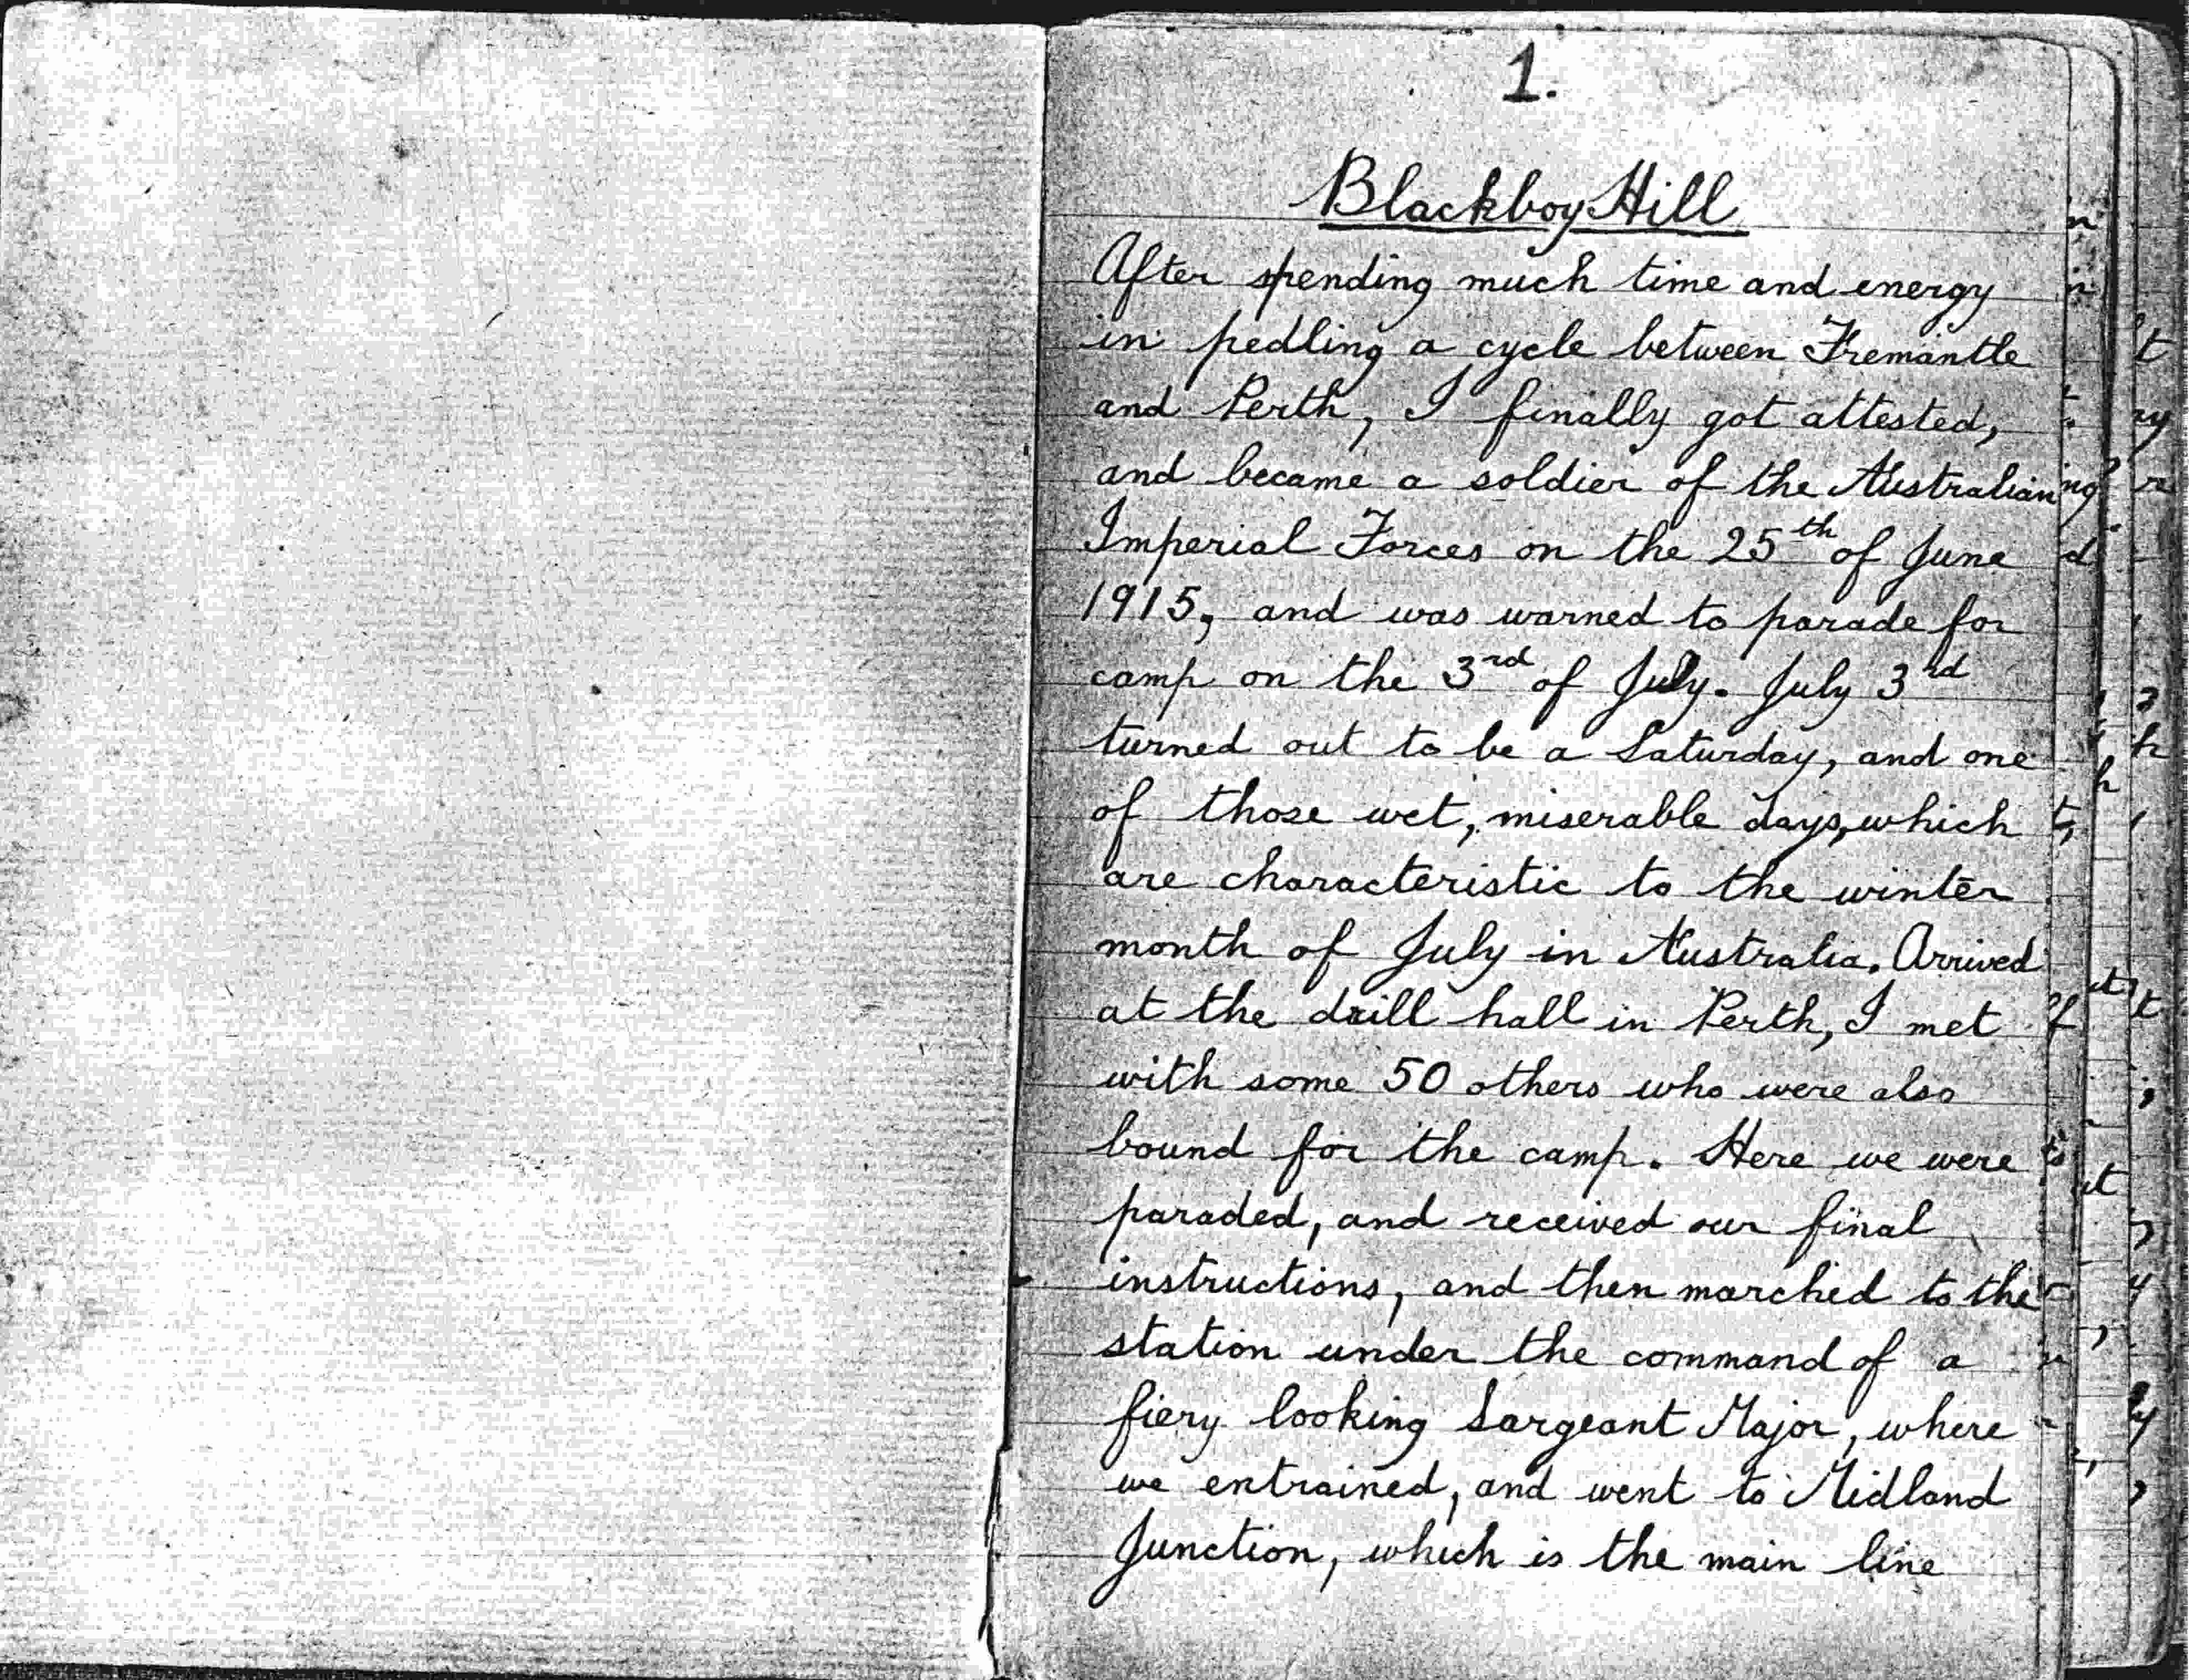 1.
Blackboy Hill
After spending much time and energy
in pedling a cycle between Fremantle
and Perth, I finally got attested,
and became a soldier of the Australian
Imperial Forces on the 25th of June
1915, and was warned to parade for
camp on the 3rd of July. July 3rd
turned out to be a Saturday, and one
of those wet, miserable days, which
are characteristic to the winter
month of July in Australia. Arrived
at the drill hall in Perth, I met
with some 50 others who were also
bound for the camp. Here we were
paraded, and received our final
instructions, and then marched to the
station under the command of a
fiery looking Sargeant Major, where
we entrained, and went to Midland
Junction, which is the main line